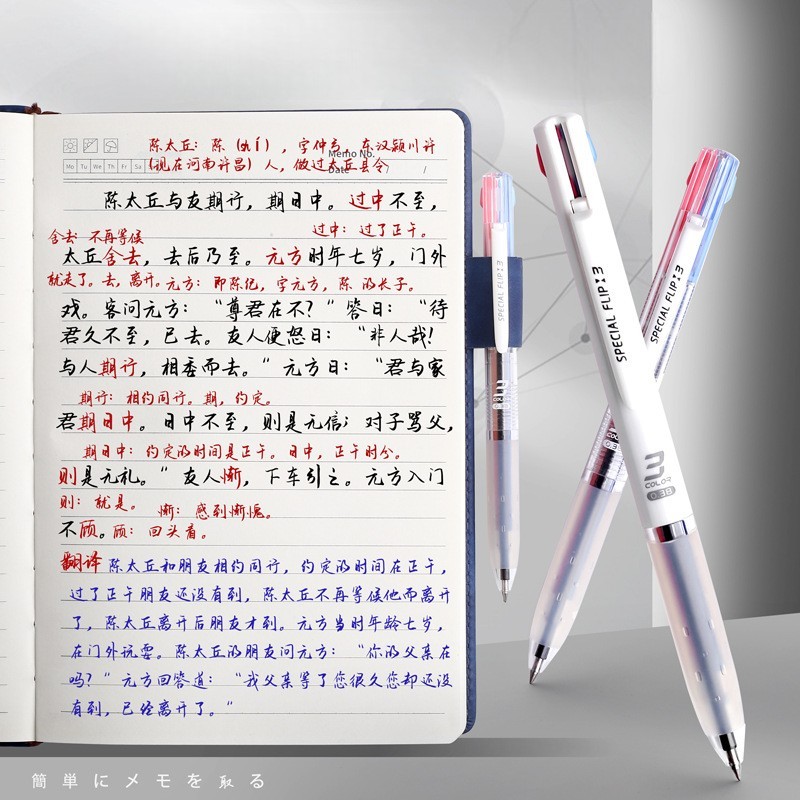 陈太丘：陈（shí），字仲弓，东汉颍川许
（现在河南许昌）人，做过太丘县令
Memo No.
Date / /
Mo Tu We Th Fr Sa
陈太丘与友期行，期日中。过中不至，
舍去 不再等候
过中：过了正午。
太丘舍去，去后乃至。元方时年七岁，门外
就走了。去，离开。元方：即陈纪，字元方，陈 的长子。
戏。客问元方：“尊君在不？”答日：“待
君久不至，已去。友人便怒日：“非人哉！
与人期行，相委而去。“元方日：“君与家
期行：相约同行。期，约定。
君期日中。日中不至，则是无信；对子骂父，
期日中：约定的时间是正午。日中，正午时分。
则是无礼。“友人惭，下车引之。元方入门
则：就是。 惭：感到惭愧。
不顾。顾：回头看。
翻译 陈太丘和朋友相约同行，约定的时间在正午，
过了正午朋友还没有到，陈太丘不再等候他而离开
了，陈太丘离开后朋友才到。元方当时年龄七岁，
在门外玩耍。陈太丘的朋友问元方：“你的父亲在
吗？“元方回答道：“我父亲等了您很久您却还没
有到，已经离开了。“
SPECIAL FLIP:3
SPECIAL FLIP:3
SPECIAL FLIP:3
COLOR
0.38
簡単にメモを取る